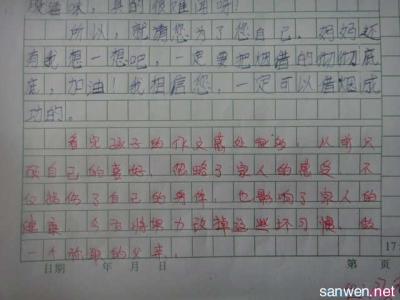 烟味，真的很难闻呀！
所以，就请您为了您自己，妈妈还
有我想一想吧，一定要把烟借的彻彻底
底，加油！我相信您，一定可以借烟成
功的。
看完孩子的作文感处颇多，从前只
顾自己的喜好，忽略了家人的感受，不
仅损伤了自己的身体，也影响了家人的
健康，今后将努力改掉这些坏习惯，做
一个称职的父亲。
17
日期 年 月 日 第 页
sanwen.net